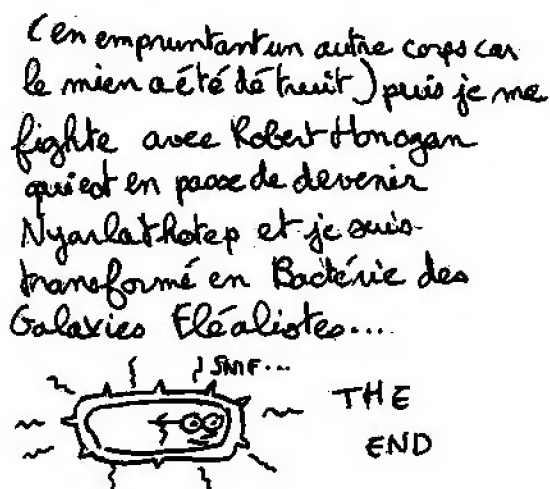 (en empruntant un autre corps car
le mien a été détruit) puis je me
fighte avec Robert Honogan
qui est en passe de devenir
Nyarlathotep et je suis
transformé en Bactérie des
Galaxies Eléalistes....
SNIF...
THE
END